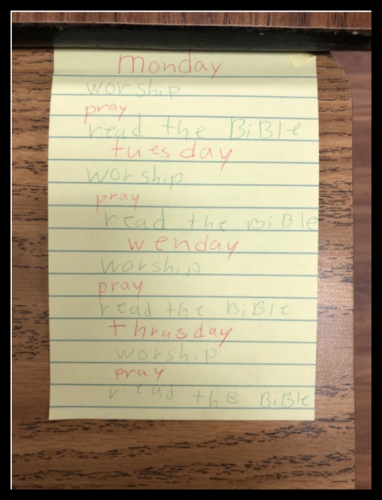 monday
worship
pray
read the BiBLe
tuesday
worship
pray
read the BiBLe
wenday
worship
pray
read the biBle
thrusday
worship
pray
read the BiBle